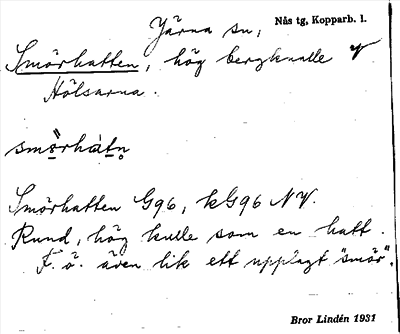 Järna sn, Nås tg, Kopparb. l.
Smörhatten, hög bergknalle V
Hölsarna.
smö̀rhàtn̥
Smörhatten G96, kG96 NV.
Rund, hög kulle som en hatt.
F. ö. även lik ett upplagt "smör".
Bror Lindén 1931